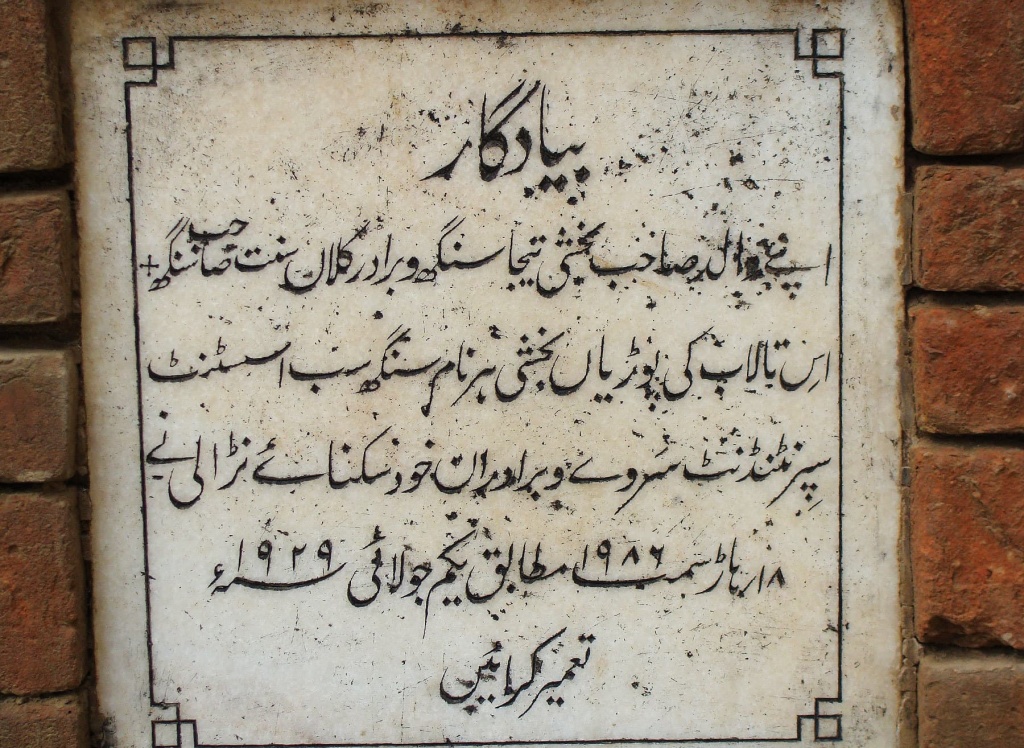 بیادگار
اپنے وال صاحب بخشی تیجا سنگھ و برادر کلان سنت صاحب سنگھ +
اِس تالاب کی پوڑیاں بخشی ہرنام سنگھ سب اسسٹنٹ
سپرنٹنڈنٹ سروے و برادران خود سکنائے نڑالی نے
۱۸ ہاڑ سمت ۱۹۸۶ مطابق یکم جولائی ۱۹۲۹ء
تعمیر کرائیں